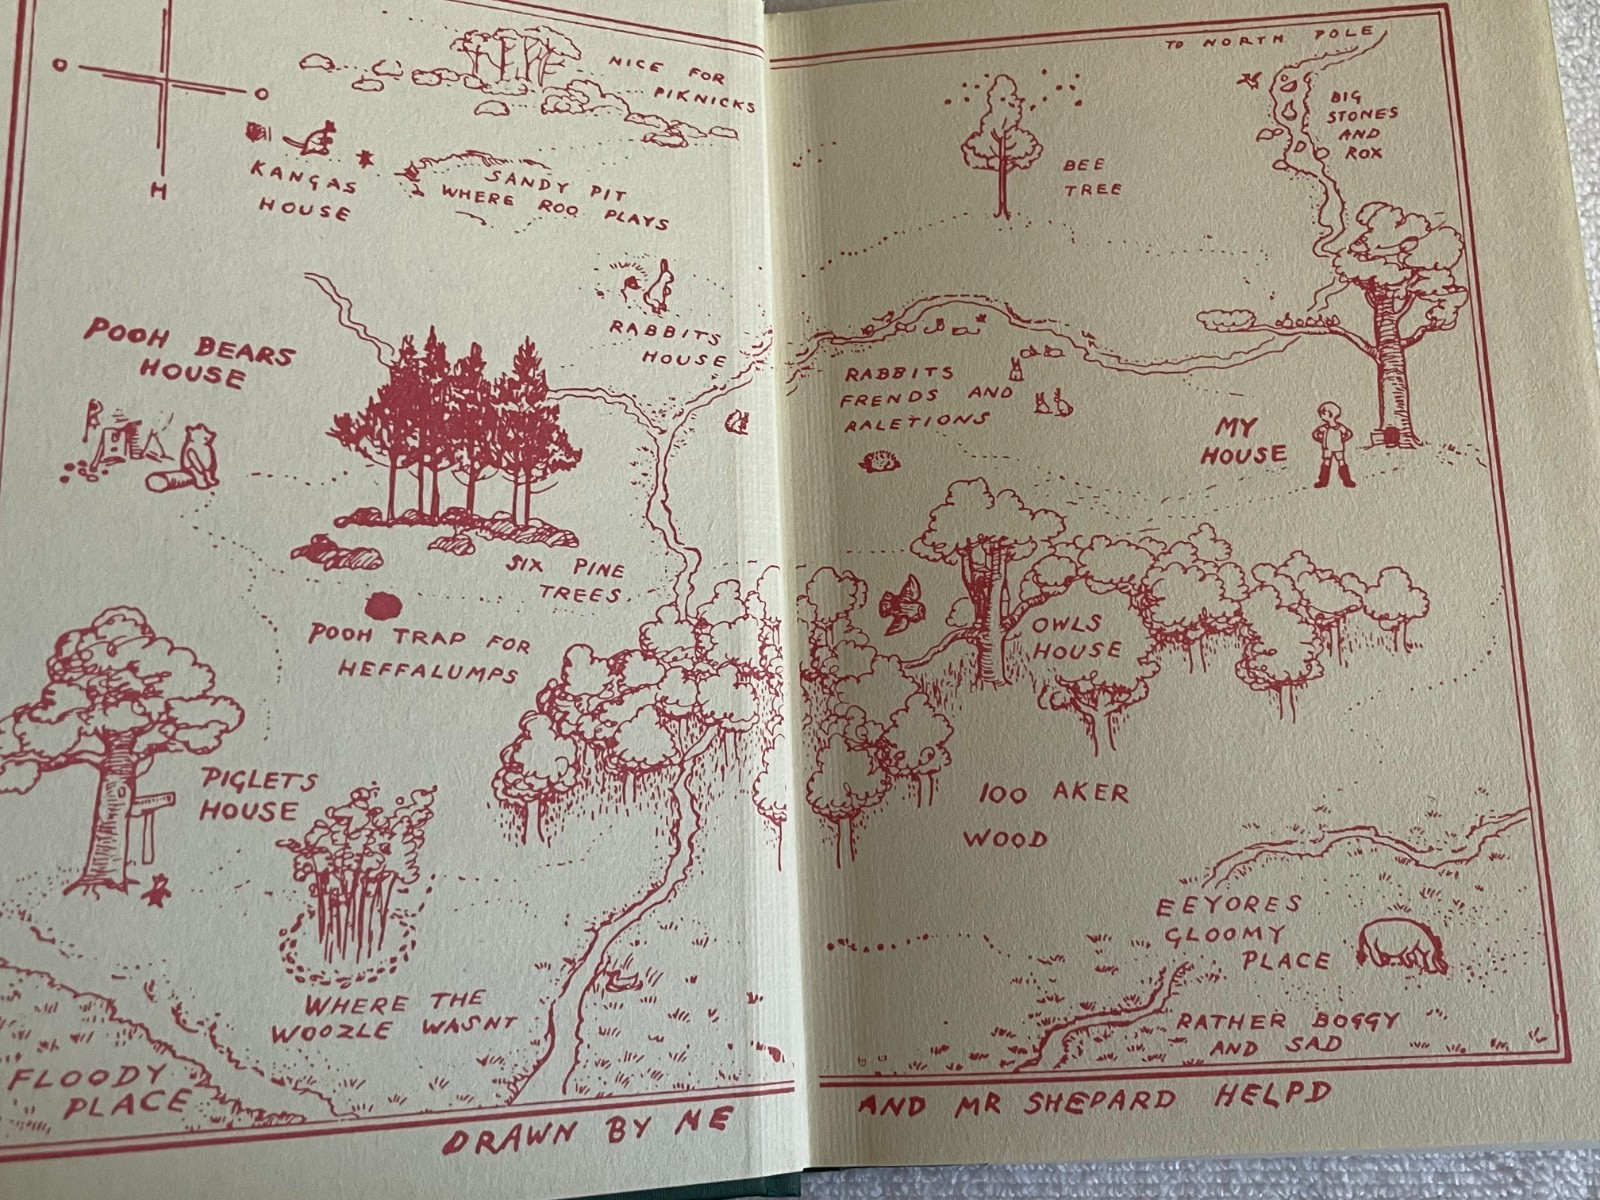 O
O
H
NICE FOR
PIKNICKS
KANGAS
HOUSE
SANDY PIT
WHERE ROO PLAYS
RABBITS
HOUSE
POOH BEARS
HOUSE
SIX PINE
TREES
POOH TRAP FOR
HEFFALUMPS
PIGLETS
HOUSE
WHERE THE
WOOZLE WASNT
FLOODY
PLACE
DRAWN BY ME
TO NORTH POLE
BIG
STONES
AND
ROX
BEE
TREE
RABBITS
FRENDS AND
RALETIONS
MY
HOUSE
OWLS
HOUSE
100 AKER
WOOD
EEYORES
GLOOMY
PLACE
RATHER BOGGY
AND SAD
AND MR SHEPARD HELPD